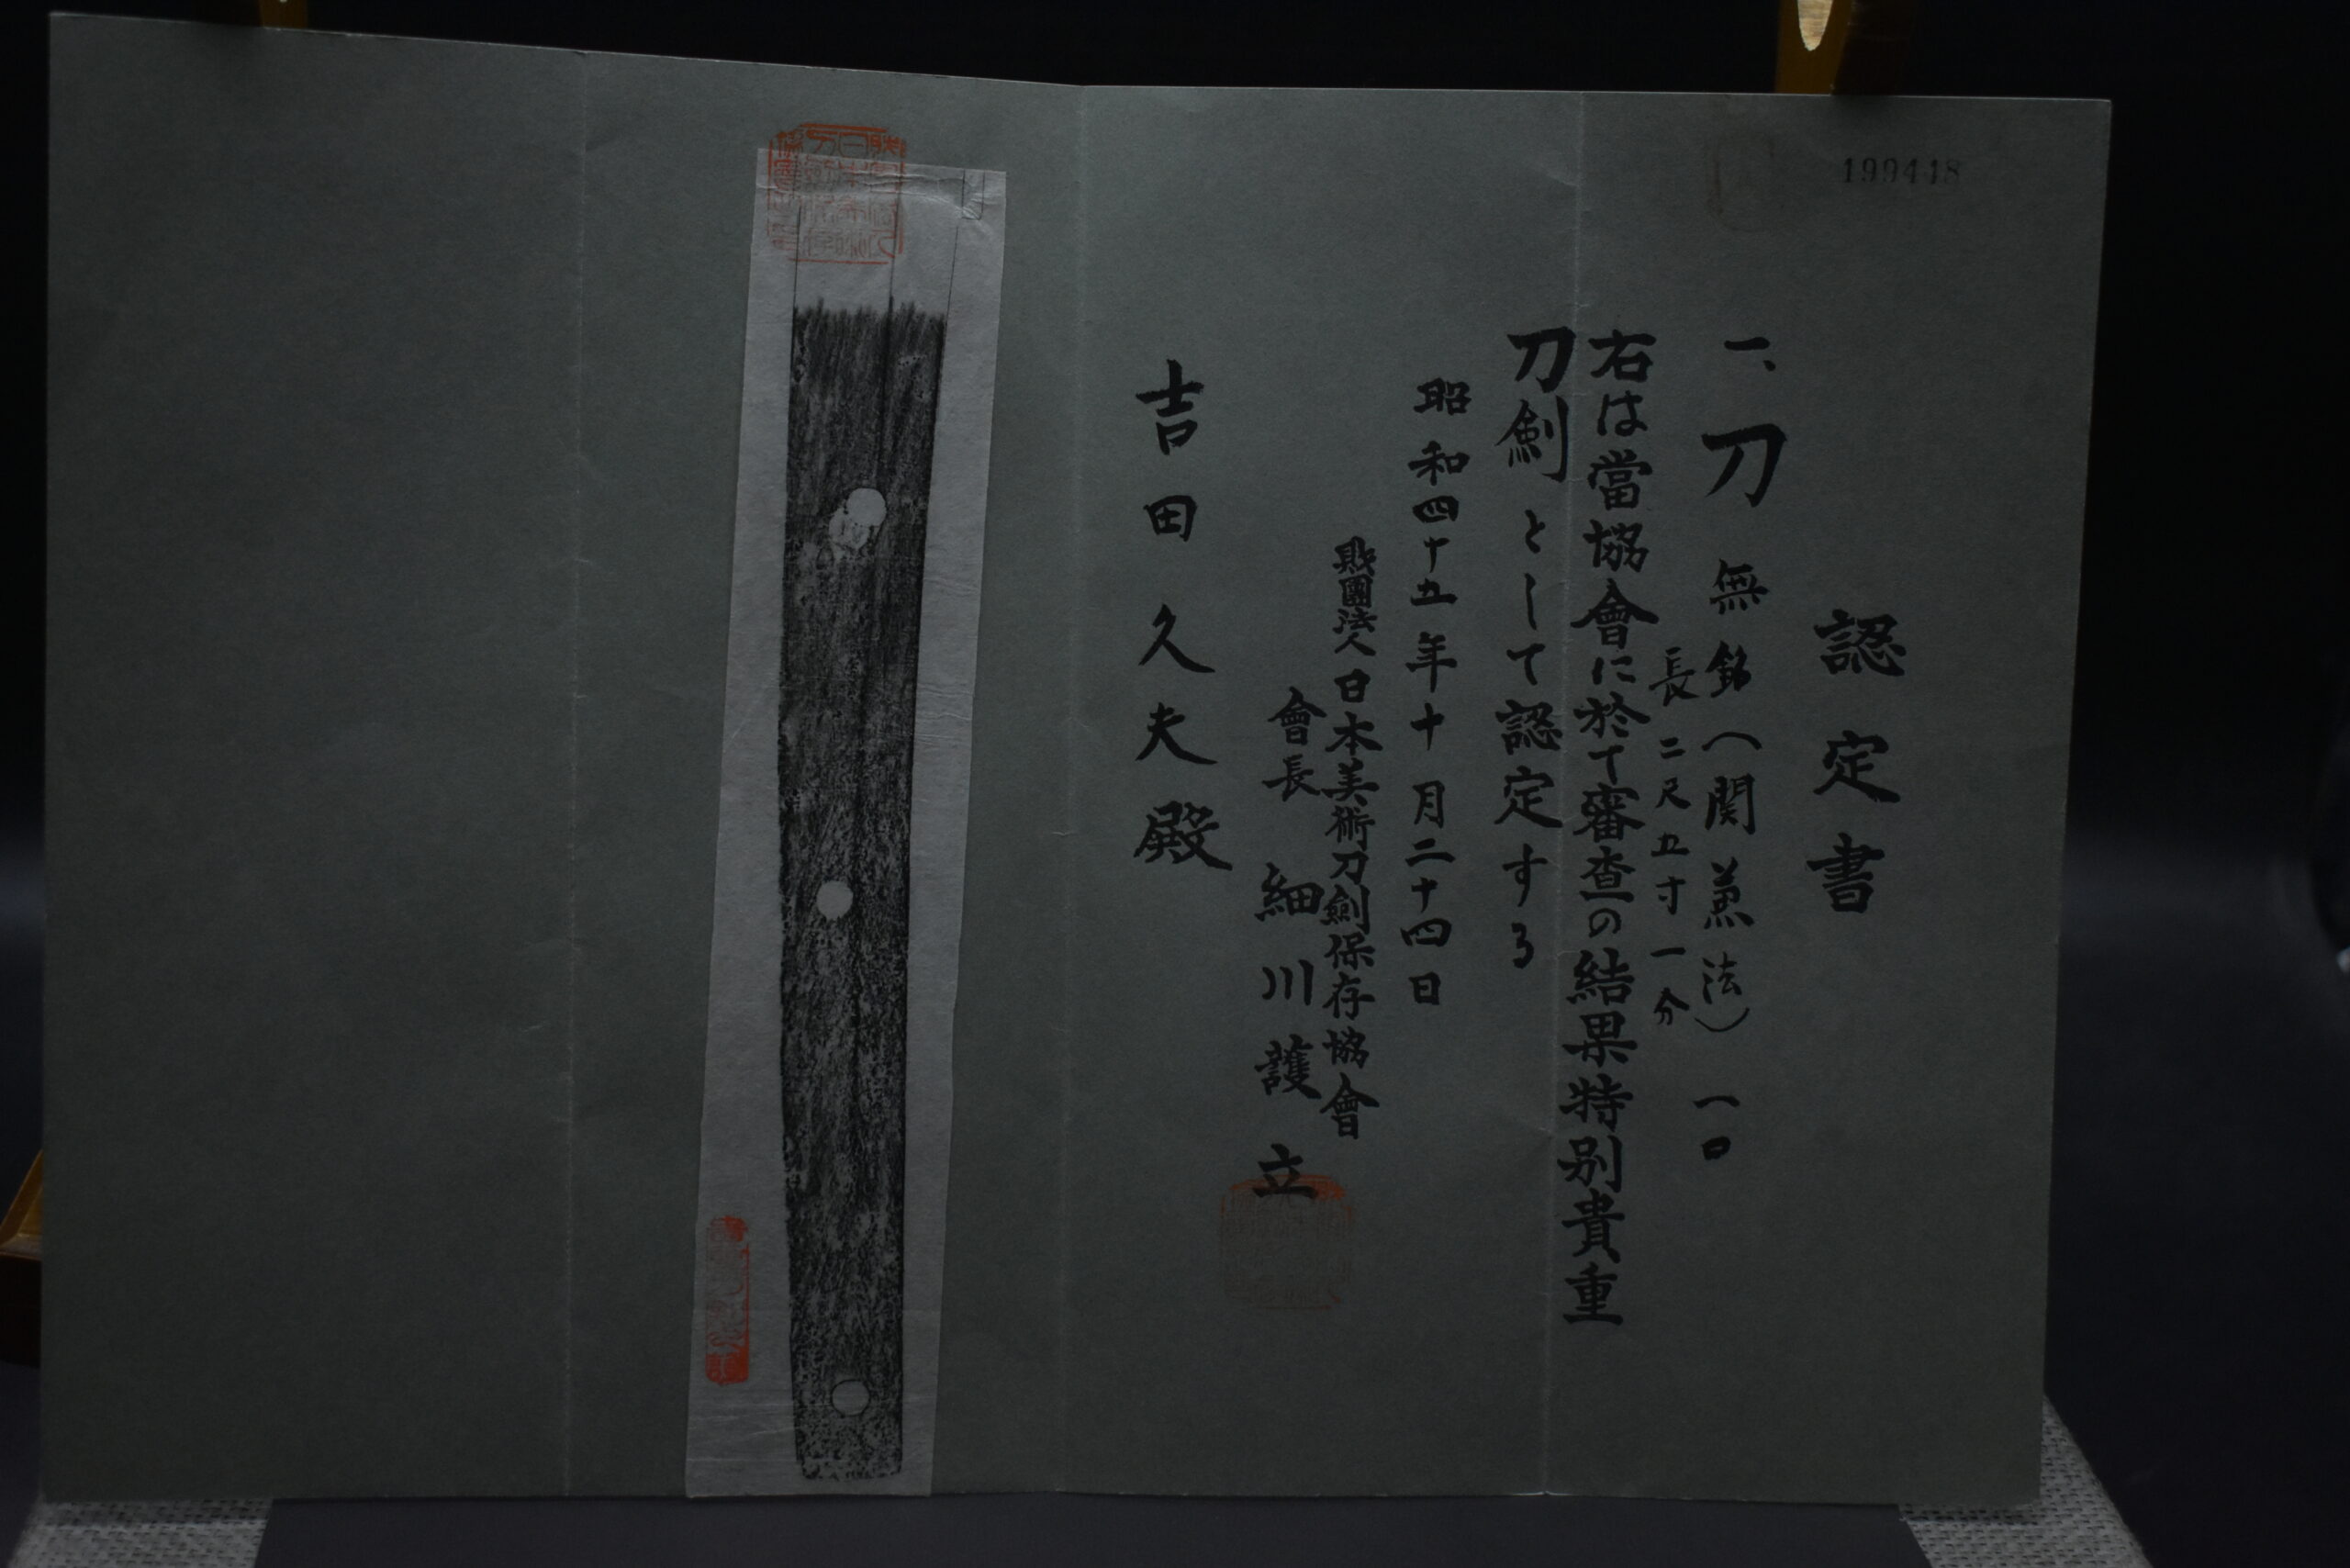 199448
認定書
一、刀 無銘(関兼法) 一口
長二尺五寸一分
右は當協會に於て審査の結果特別貴重
刀劍として認定する
昭和四十五年十月二十四日
財團法人日本美術刀劍保存協會
會長 細川護立
吉田久夫殿